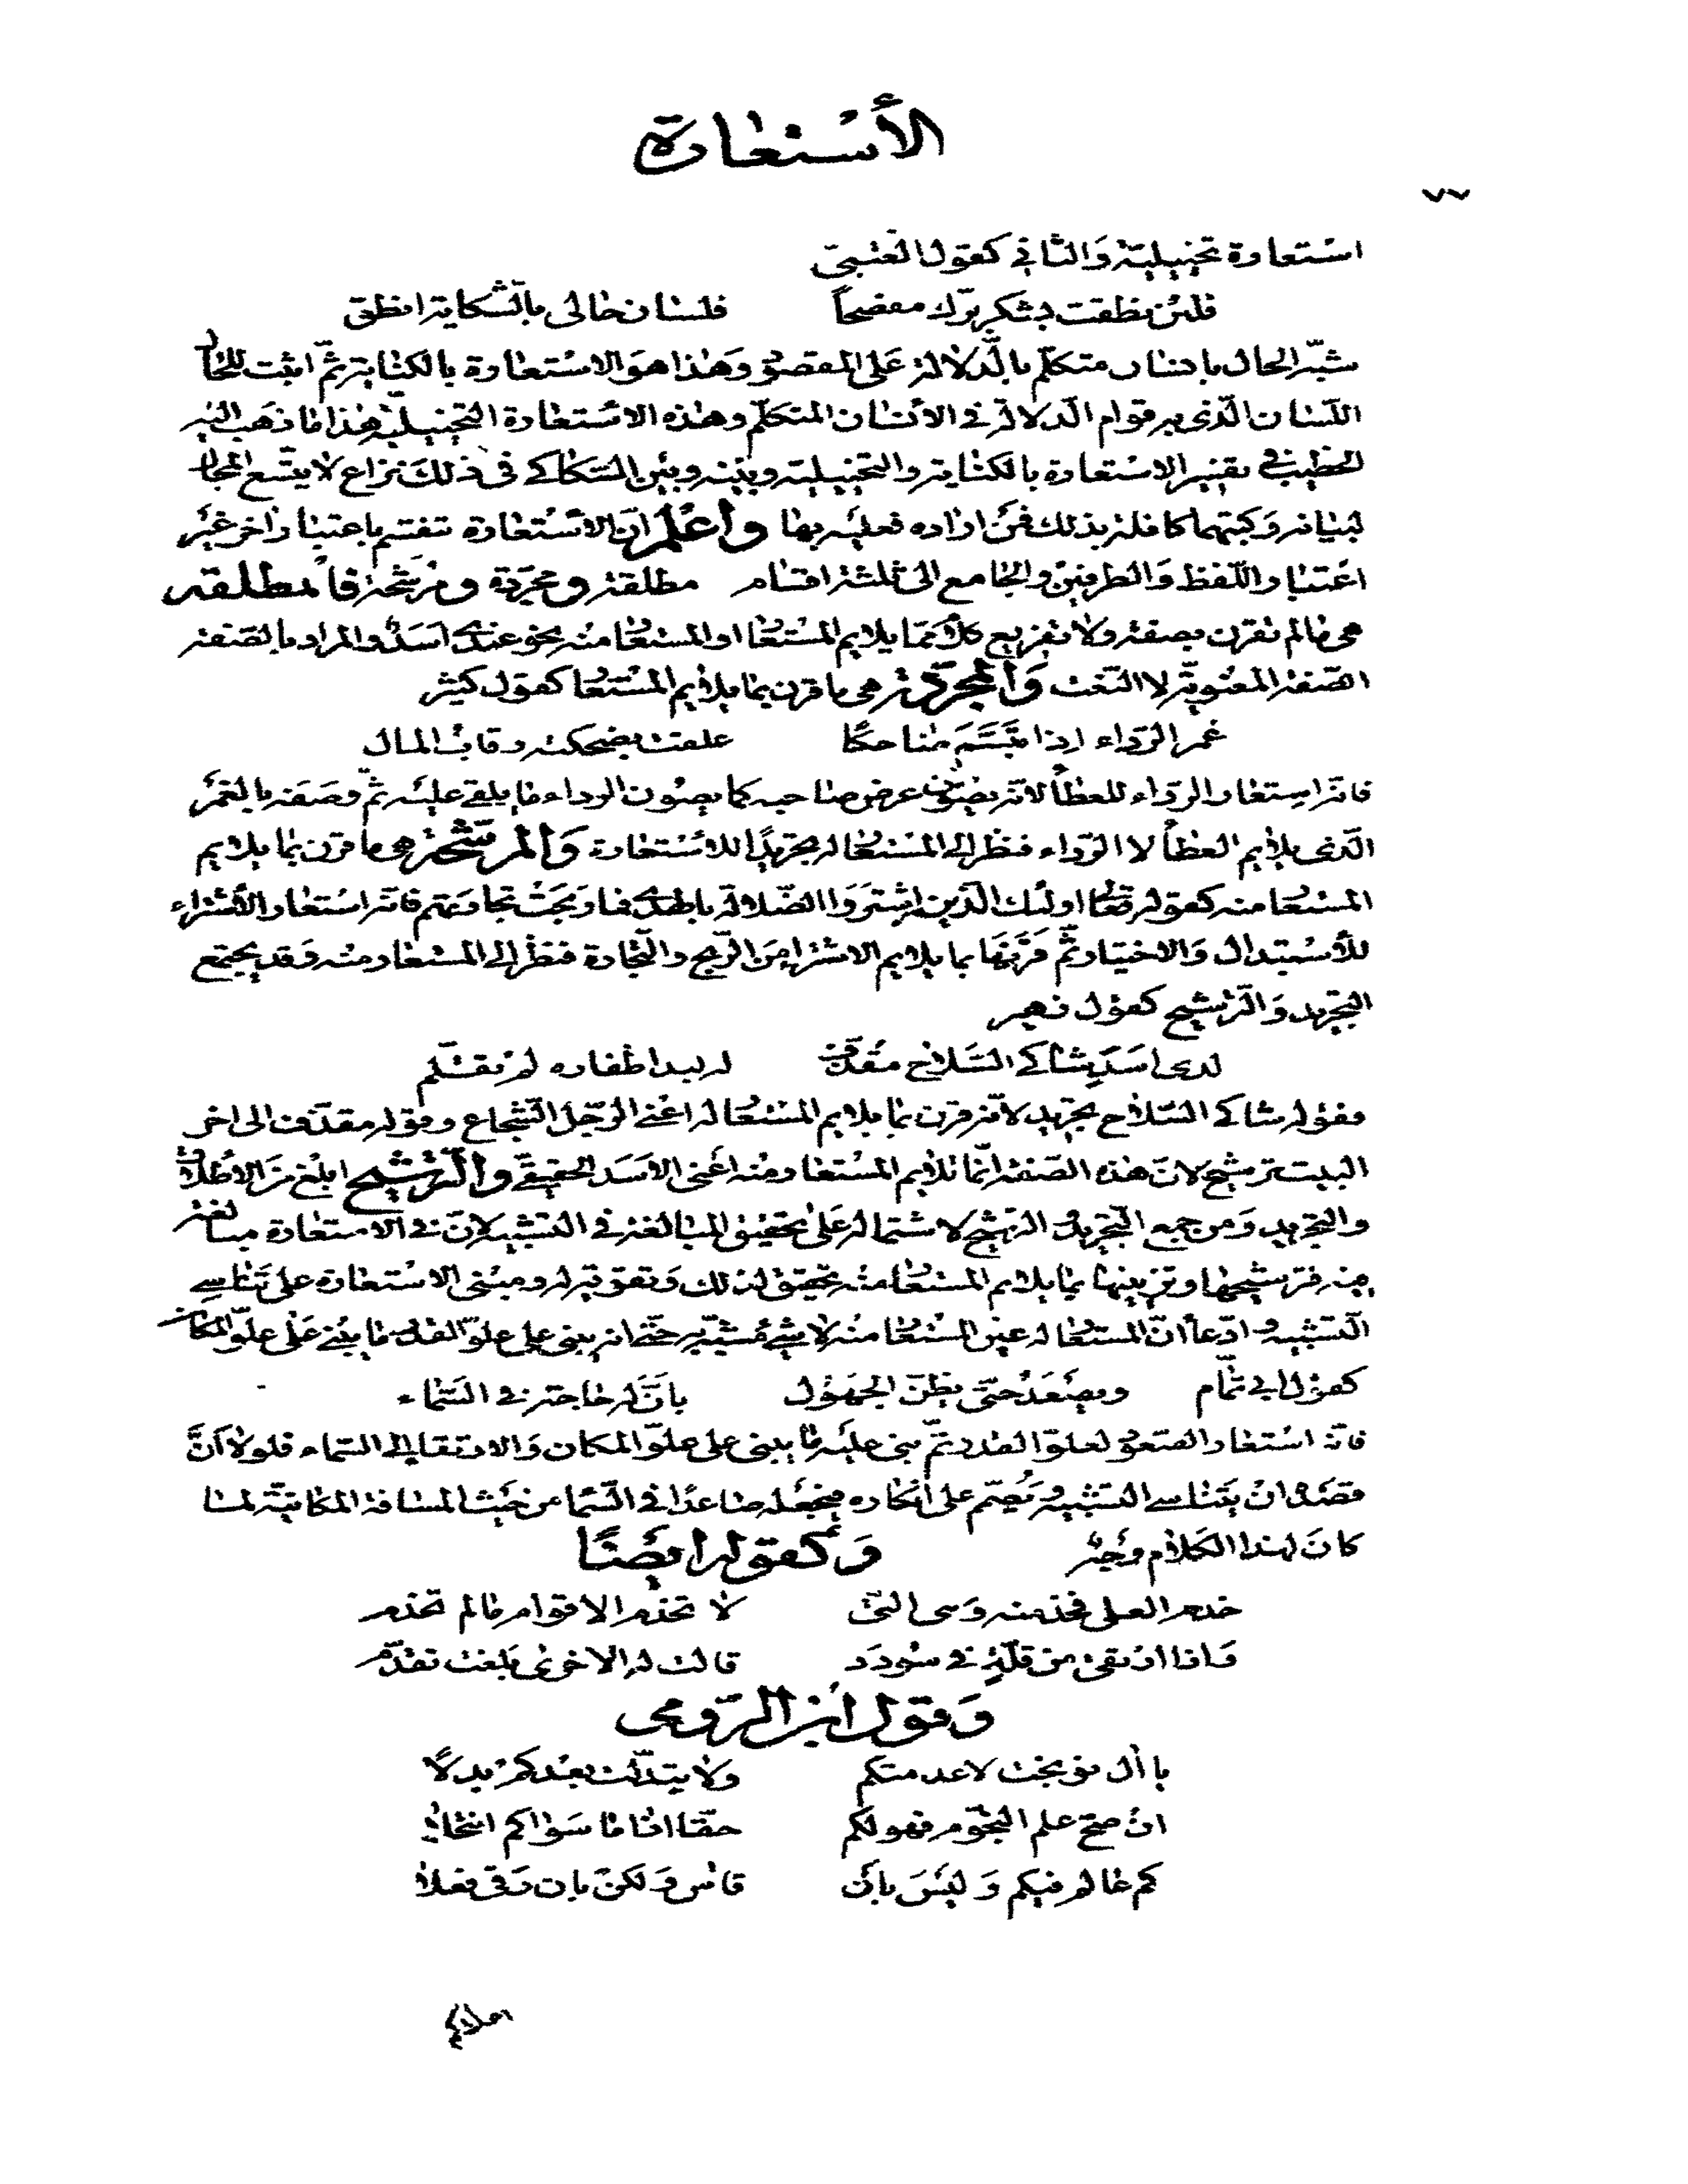 الأستعارة
٧٧
استعارة تخييلية وَالثاني كقول العتبي
فلئن نطقت بشكر برّك مفصحاً فلسان حالى بالشكاية انطق
شبّه الحال بانسان متكلّم بالدّلالة عَلى المقصود وَهذا هوَ الاسْتعارة بالكناية ثمّ اثبت للحال
اللّسان الّذى به قوام الدّلالة فى الأنسان المتكلّم وهذه الاسْتعارة التخييليّة هذا ما ذهَب اليْه
الخطيب فى تفسير الاسْتعارة بالكناية والتخييلية وبيْنه وبيْن السّكاكى فى ذلكَ نزاع لا يتّسع المجال
لبيانه وَكتبهما كافلة بذلك فمَنْ اراده فعليْه بها وَاعْلم انّ الاسْتعارة تنقسم باعتبار اخر غيْر
اعتبار اللّفظ وَالطرفيْن والجامع الى ثلثة اقسام مطلقة ومجرّدة ومرشّحة فالمطلقة
هى ما لم تقرن بصفة ولا تفريع كلام ممّا يلايم المسْتعار او المستعار منه نحو عندى اسَدٌ والمراد بالصّفة
الصّفة المعنويّة لا النّعت وَالمجرّدة هى ما قرن بما يلايم المسْتعار كقول كثيّر
غمر الرّداء اذا تبَسَّمَ ضاحكًا علقت بضحكته رقاب المال
فانّه استعار الرّداء للعطاء لانّه يصون عرض صاحبه كما يصون الرداء ما يلقى عليْه ثمّ وصَفه بالغمْر
الّذى يلايم العطاء لا الرّداء فنظر الى المسْتعار له تجريدًا للاسْتعارة وَالمرشّحة هى ما قرن بما يلايم
المسْتعار منه كقوله تعالى اولئك الّذين اشترَوا الضّلالة بالهدى فما رَبحَتْ تجارَتهم فانّه اسْتعار الأشتراء
للأسْتبدال وَالاختيار ثمّ قرَنها بما يلايم الاشتراء منَ الرّبح والتّجارة فنظر الى المسْتعار منْه وَقد يجتمع
التجريد وَالترْشيح كقوْل زهير
لدى اسَدٍ شاكى السّلاح مُقذّف له لبد اظفاره لمْ تقلّم
فقوْله شاكى السّلاح تجريد لانّه قرن بما يلايم المسْتعار له اعْنى الرّجل الشّجاع وقوله مقذّف الى اخر
البيت ترشيح لانّ هذه الصّفة انّما تلايم المسْتعار منْه اعْنى الاسَد الحقيقىّ والتّرشيح ابلغ منَ الاطلاق
والتجريد وَمن جمع التّجريد والترشيح لاشتماله عَلى تحقيق المبالغة فى التشبيه لانّ فى الاستعارة مبالغة
فيه فترشيحها وتزيينها بما يلايم المستعار منْه تحقيق لذلك وَتقويَة له ومبْنى الاسْتعارة على تَناسى
التّشبيه وادّعاء انّ المستعار له عيْن المسْتعار منْه لا شئ مُشبّه به حتّى انه يبنى على علوّ القدر ما يبْنى عَلى علوّ المكان
كقوْل ابى تمّام ويصْعَدُ حتّى يظنّ الجهول بانّ له حاجة فى السّماء
فانّه اسْتعار الصّعود لعلوّ القدر ثمّ بنى عليْه ما يبنى على علوّ المكان وَالارتقاء الى السّماء فلولا اَنَّ
قصْده انْ يتَناسى التشبيه وَيُصمّم على انكاره فيجْعله صاعدًا فى السّماء من حَيْث المسافة المكانيّة لما
كانَ لهذا الكلام وَجْه وَكقوله ايضًا
خدم العلى فخدمنه وَهى التى لا تخدم الاقوام ما لم تخدم
وَاذا ارتقى من قلّةٍ فى سُودَد قالت له الاخرى بلغت تقدّم
وَقول ابن الرّومى
يا آل نوبخت لا عدمتكم وَلا تبدّلت بعْدكمْ بدلًا
انْ صحّ علم النّجوم فهو لكم حقّا اذا ما سوَاكم انتحلا
كم عالم فيكم وَليْسَ بانْ قاس وَلكنْ بان رَقى فعلا
اعلاكم